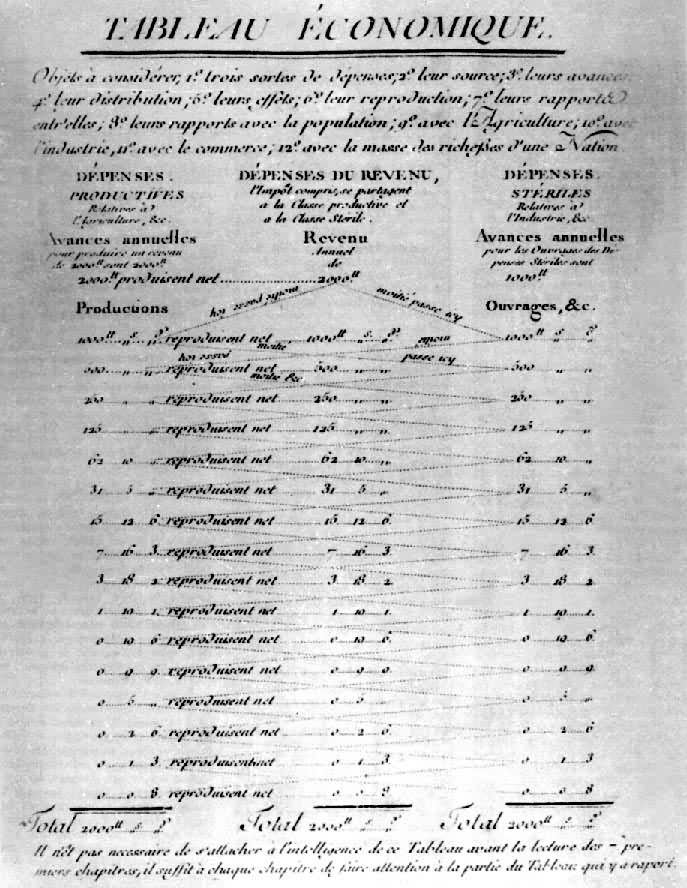 TABLEAU ÉCONOMIQUE.
Objets à considérer, 1º. trois sortes de dépenses; 2º. leur source; 3º. leurs avances;
4º. leur distribution; 5º. leurs effets; 6º. leur reproduction; 7º. leurs rapports
entr'elles; 8º. leurs rapports avec la population; 9º. avec l'Agriculture; 10º. avec
l'industrie; 11º. avec le commerce; 12º. avec la masse des richesses d'une Nation.
DÉPENSES PRODUCTIVES Relatives à l'Agriculture, &c.
DÉPENSES DU REVENU, l'Impôt compris, se partagent à la Classe productive et à la Classe Stérile.
DÉPENSES STÉRILES Relatives à l'Industrie, &c
Avances annuelles pour produire un revenu de 2000ᵗᵗ sont 2000ᵗᵗ
Revenu Annuel de
Avances annuelles pour les Ouvrages des Dépenses Stériles sont
2000ᵗᵗ produisent net 2000ᵗᵗ 1000ᵗᵗ
moitié passe icy moitié passe icy
Productions Ouvrages, &c.
1000ᵗᵗ reproduisent net 1000ᵗᵗ 1000ᵗᵗ
moitié passe icy
500 reproduisent net 500 500
moitié &c
250 reproduisent net 250 250
125 reproduisent net 125 125
62 10 reproduisent net 62 10 62 10
31 5 reproduisent net 31 5 31 5
15 12 6 reproduisent net 15 12 6 15 12 6
7 16 3 reproduisent net 7 16 3 7 16 3
3 18 2 reproduisent net 3 18 2 3 18 2
1 19 1 reproduisent net 1 19 1 1 19 1
0 19 6 reproduisent net 0 19 6 0 19 6
0 9 9 reproduisent net 0 9 9 0 9 9
0 5 reproduisent net 0 5 0 5
0 2 6 reproduisent net 0 2 6 0 2 6
0 1 3 reproduisent net 0 1 3 0 1 3
0 0 8 reproduisent net 0 0 8 0 0 8
Total 2000ᵗᵗ Total 2000ᵗᵗ Total 2000ᵗᵗ
Il n'est pas necessaire de s'attacher à l'intelligence de ce Tableau avant la lecture des 7 pre-
miers chapitres, il suffit à chaque chapitre de faire attention à la partie du Tableau qui y a raport.